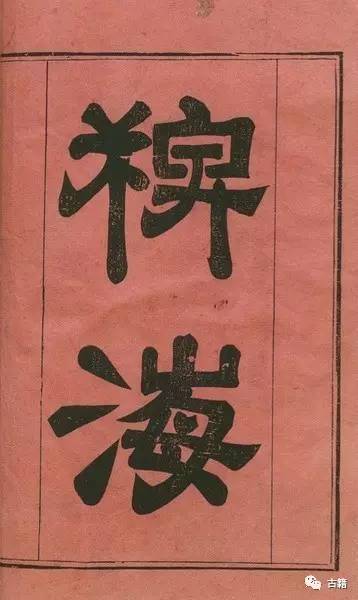 稗
海
古籍